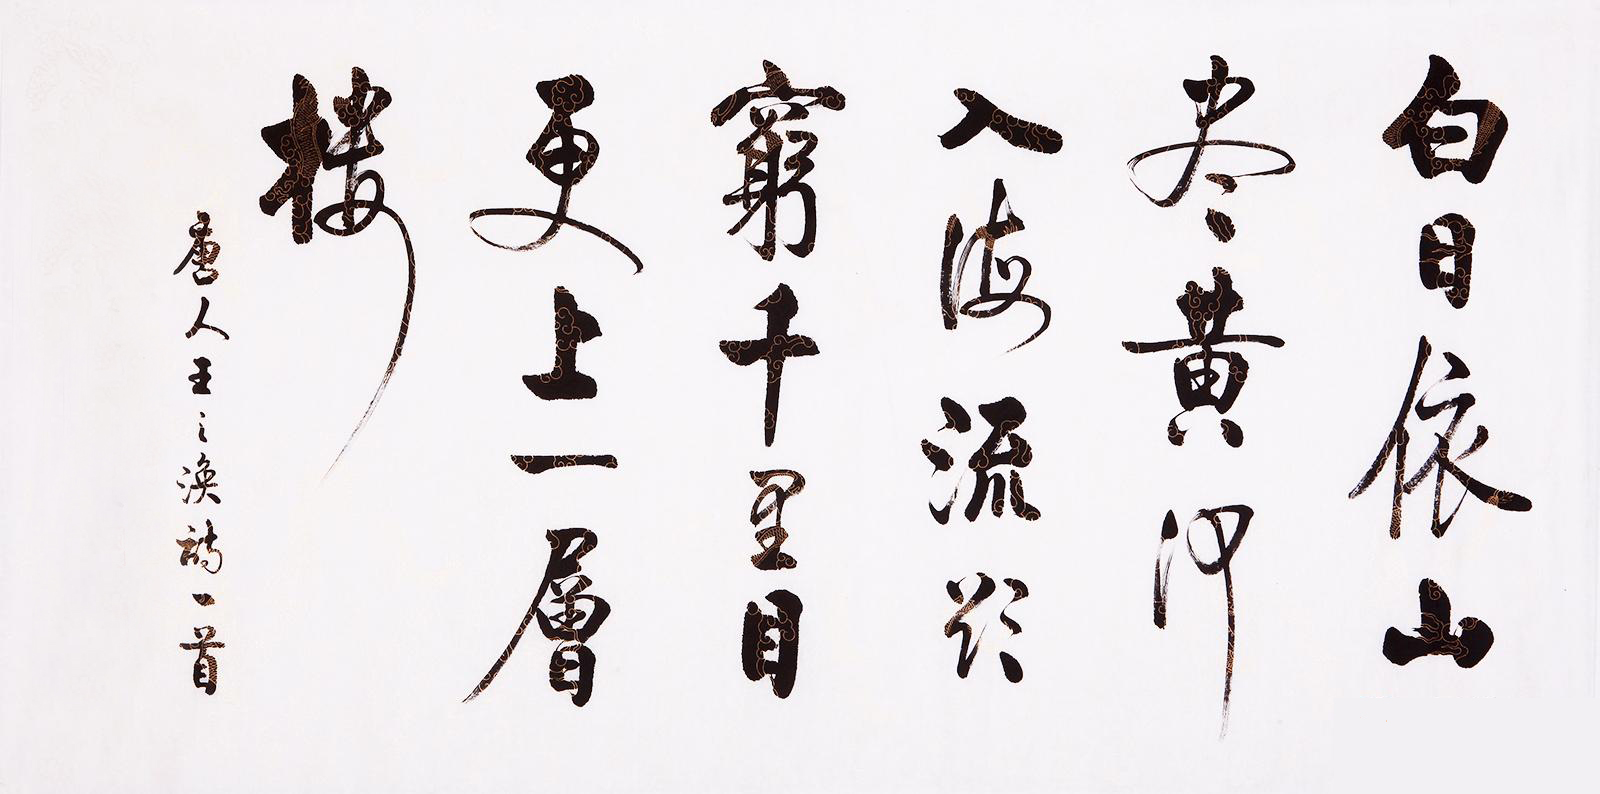 白日依山
尽黄河
入海流欲
窮千里目
更上一層
楼
唐人王之渙詩一首